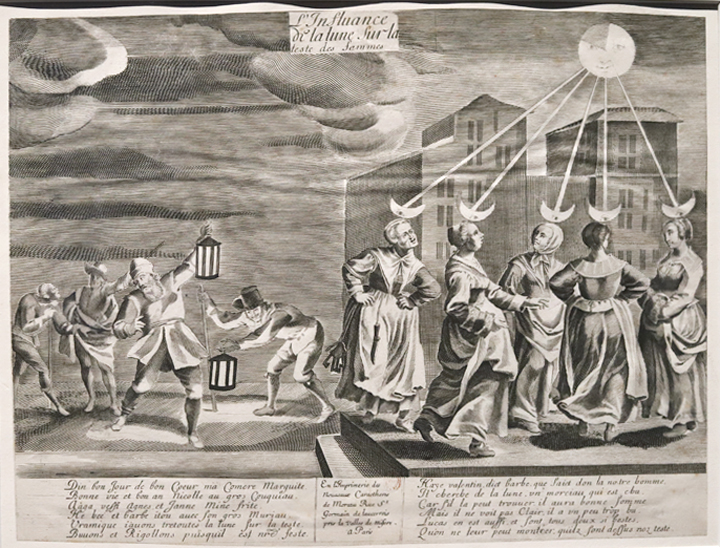 L'Influance
de la lune Sur la
teste des femmes
Din bon Jour de bon Coeur ma Comere Marquite
Bonne vie et bon an Nicolle au gros Couquiau
Agnes et Janne Mine frite
He bee et barbe itou avec son gros Muriau
Vramique iauons tretoutes la lune sur la teste
Buuons et Rigollons puisquil est nord feste
En L'Imprimerie du
Nouveau
de Rue St
Germain de
pres la Valleé de Misere
a Paris
valentin, dist barbe, que faist don la notre homme
cherche de la lune, vn morciau, qui est chu
Car sil la peut trouuer il aura bonne Somme
Mais il ne voit pas Clair, il a vn peu trop bu
Lucas en est aussi, et sont, tous deux si bestes
Quon ne leur peut montrer, quilz sont dessus noz teste